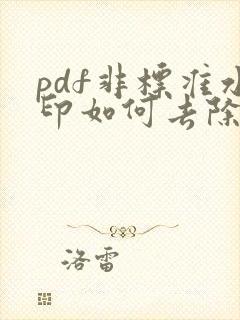 pdf非标准水
印如何去除
洛雷